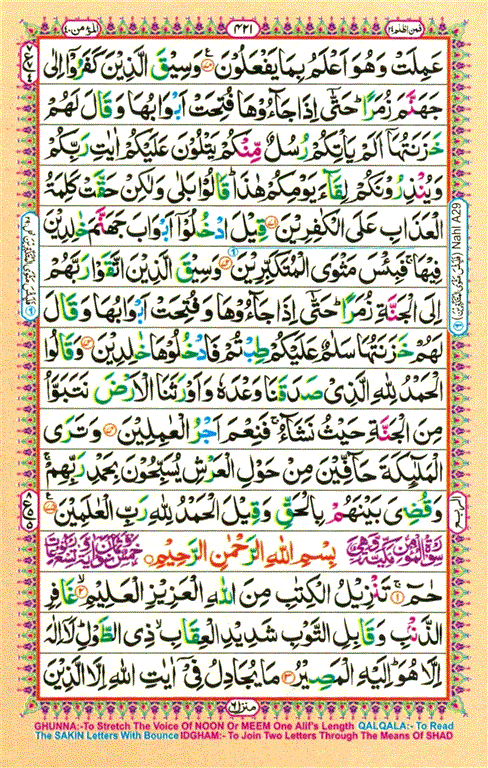 المؤمن ٤٠
٤٢١
فمن اظلم ٢٤
عَمِلَتْ وَهُوَ اَعْلَمُ بِمَا يَفْعَلُوْنَ وَسِيْقَ الَّذِيْنَ كَفَرُوْۤا اِلٰى
جَهَنَّمَ زُمَرًا حَتّٰۤى اِذَا جَآءُوْهَا فُتِحَتْ اَبْوَابُهَا وَقَالَ لَهُمْ
خَزَنَتُهَاۤ اَلَمْ يَاْتِكُمْ رُسُلٌ مِّنْكُمْ يَتْلُوْنَ عَلَيْكُمْ اٰيٰتِ رَبِّكُمْ
وَيُنْذِرُوْنَكُمْ لِقَآءَ يَوْمِكُمْ هٰذَا قَالُوْا بَلٰى وَلٰكِنْ حَقَّتْ كَلِمَةُ
الْعَذَابِ عَلَى الْكٰفِرِيْنَ قِيْلَ ادْخُلُوْۤا اَبْوَابَ جَهَنَّمَ خٰلِدِيْنَ
فِيْهَا فَبِئْسَ مَثْوَى الْمُتَكَبِّرِيْنَ وَسِيْقَ الَّذِيْنَ اتَّقَوْا رَبَّهُمْ
اِلَى الْجَنَّةِ زُمَرًا حَتّٰۤى اِذَا جَآءُوْهَا وَفُتِحَتْ اَبْوَابُهَا وَقَالَ
لَهُمْ خَزَنَتُهَا سَلٰمٌ عَلَيْكُمْ طِبْتُمْ فَادْخُلُوْهَا خٰلِدِيْنَ وَقَالُوا
الْحَمْدُ لِلّٰهِ الَّذِيْ صَدَقَنَا وَعْدَهٗ وَاَوْرَثَنَا الْاَرْضَ نَتَبَوَّاُ
مِنَ الْجَنَّةِ حَيْثُ نَشَآءُ فَنِعْمَ اَجْرُ الْعٰمِلِيْنَ وَتَرَى
الْمَلٰٓئِكَةَ حَآفِّيْنَ مِنْ حَوْلِ الْعَرْشِ يُسَبِّحُوْنَ بِحَمْدِ رَبِّهِمْ
وَقُضِيَ بَيْنَهُمْ بِالْحَقِّ وَقِيْلَ الْحَمْدُ لِلّٰهِ رَبِّ الْعٰلَمِيْنَ
بِسْمِ اللّٰهِ الرَّحْمٰنِ الرَّحِيْمِ
حٰمٓ ۱ تَنْزِيْلُ الْكِتٰبِ مِنَ اللّٰهِ الْعَزِيْزِ الْعَلِيْمِ ۲ غَافِرِ
الذَّنْۢبِ وَقَابِلِ التَّوْبِ شَدِيْدِ الْعِقَابِ ذِي الطَّوْلِ لَاۤ اِلٰهَ
اِلَّا هُوَ اِلَيْهِ الْمَصِيْرُ ۳ مَا يُجَادِلُ فِيْۤ اٰيٰتِ اللّٰهِ اِلَّا الَّذِيْنَ
Nahl A29
منزل ٦
GHUNNA:-To Stretch The Voice Of NOON Or MEEM One Alif's Length QALQALA:- To Read
The SAKIN Letters With Bounce IDGHAM:- To Join Two Letters Through The Means Of SHAD